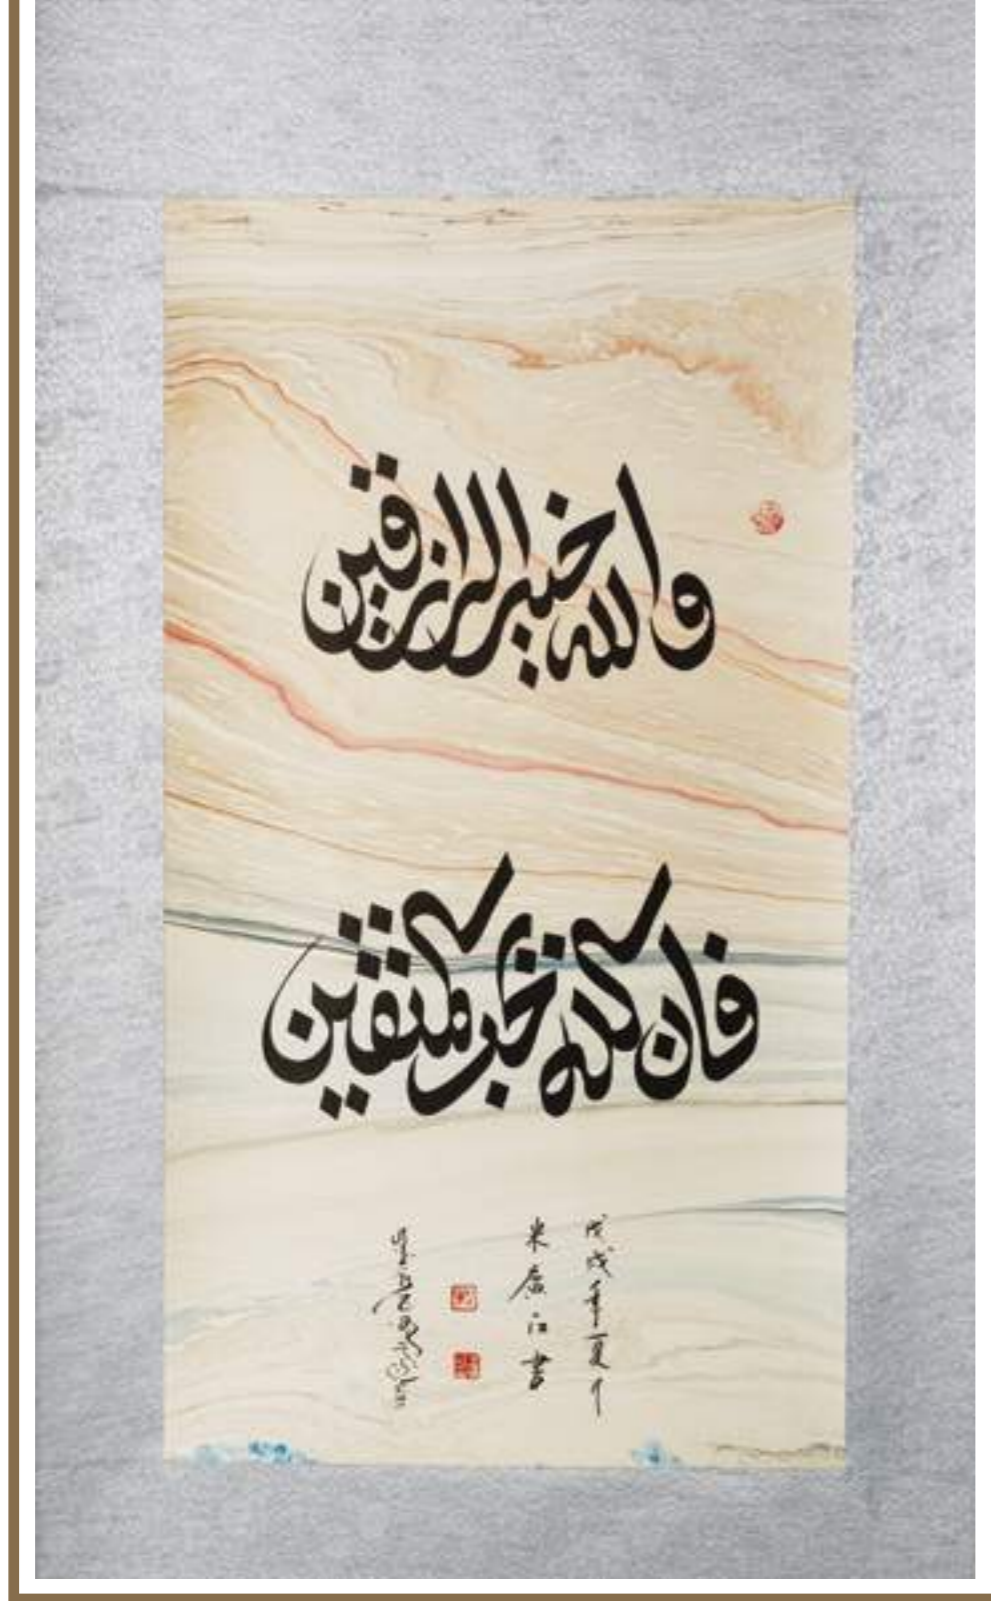 والله خير الرازقين
فان الله يحب المتقين
戊戌年夏
米廣江書